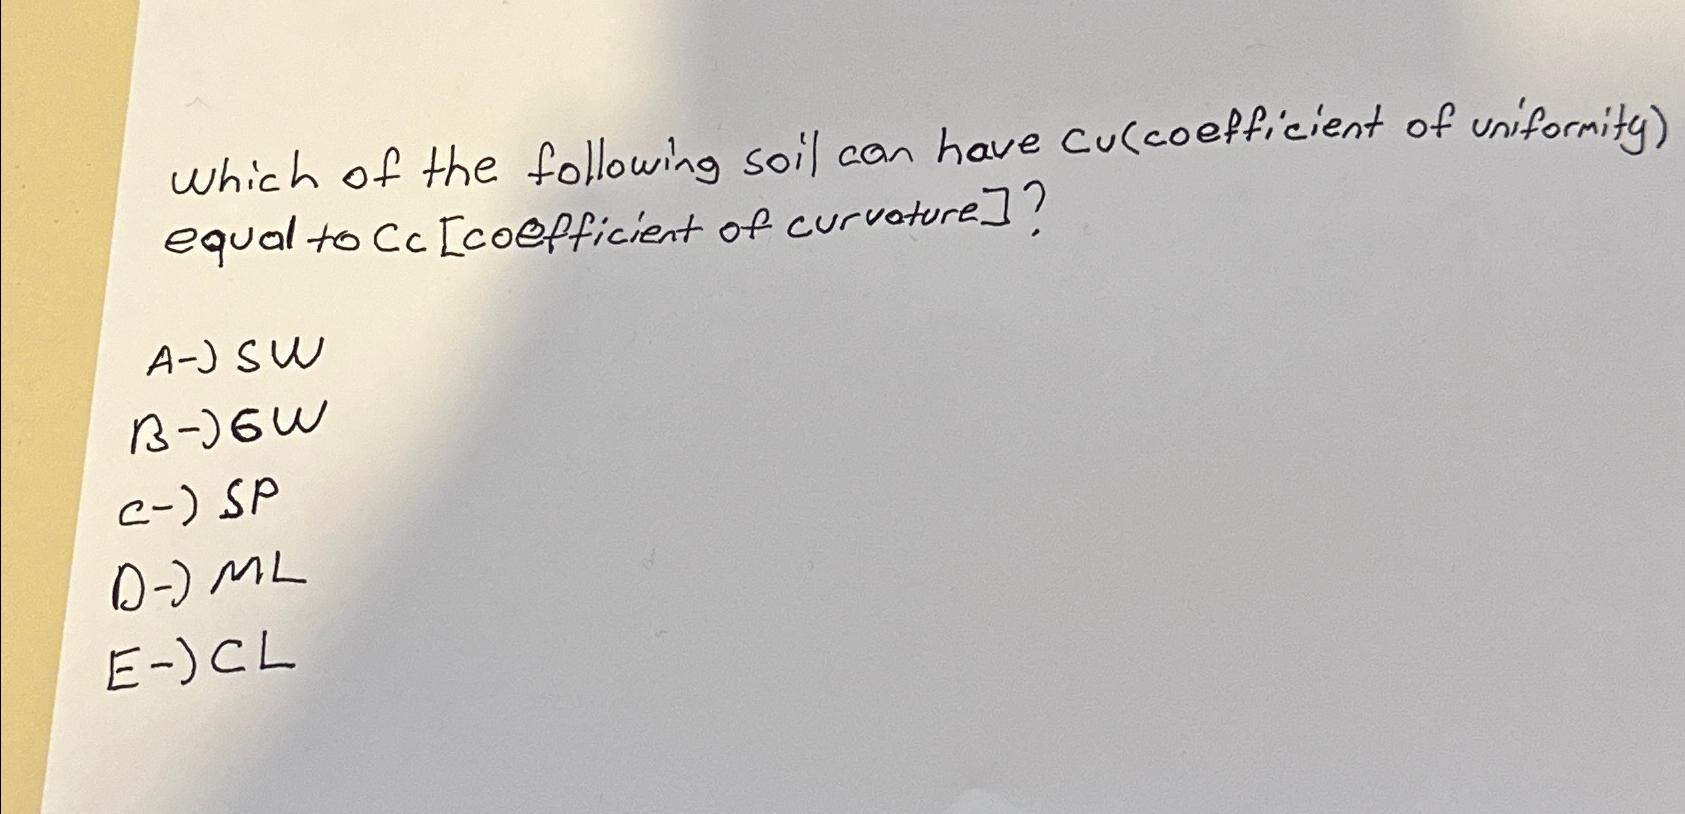 which of the following soil can have Cu(coefficient of uniformity)
equal to Cc [coefficient of curvature]?
A-) SW
B-) GW
C-) SP
D-) ML
E-) CL